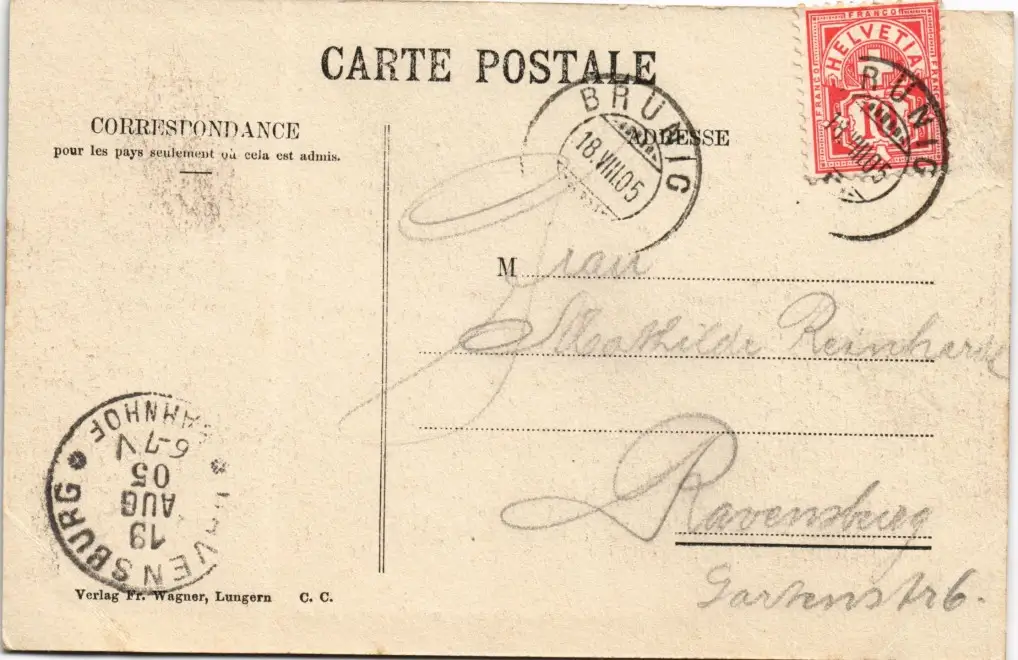 CARTE POSTALE
CORRESPONDANCE
pour les pays seulement où cela est admis.
ADRESSE
FRANCO
HELVETIA
FRANCO
FRANCO
10
BRUNIG
18.VIII.05
BRUNIG
18.VIII.05
M Frau
Mathilde Reinhardt
Ravensburg
Gartenstr 6.
RAVENSBURG
19
AUG
05
6-7 V
BAHNHOF
Verlag Fr. Wagner, Lungern C. C.